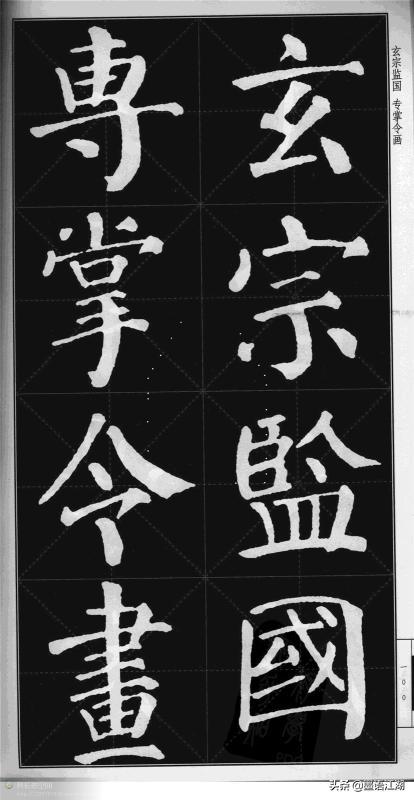 玄宗監國
專掌令畫
玄宗监国 专掌令画
一〇〇
头条 @墨语江湖